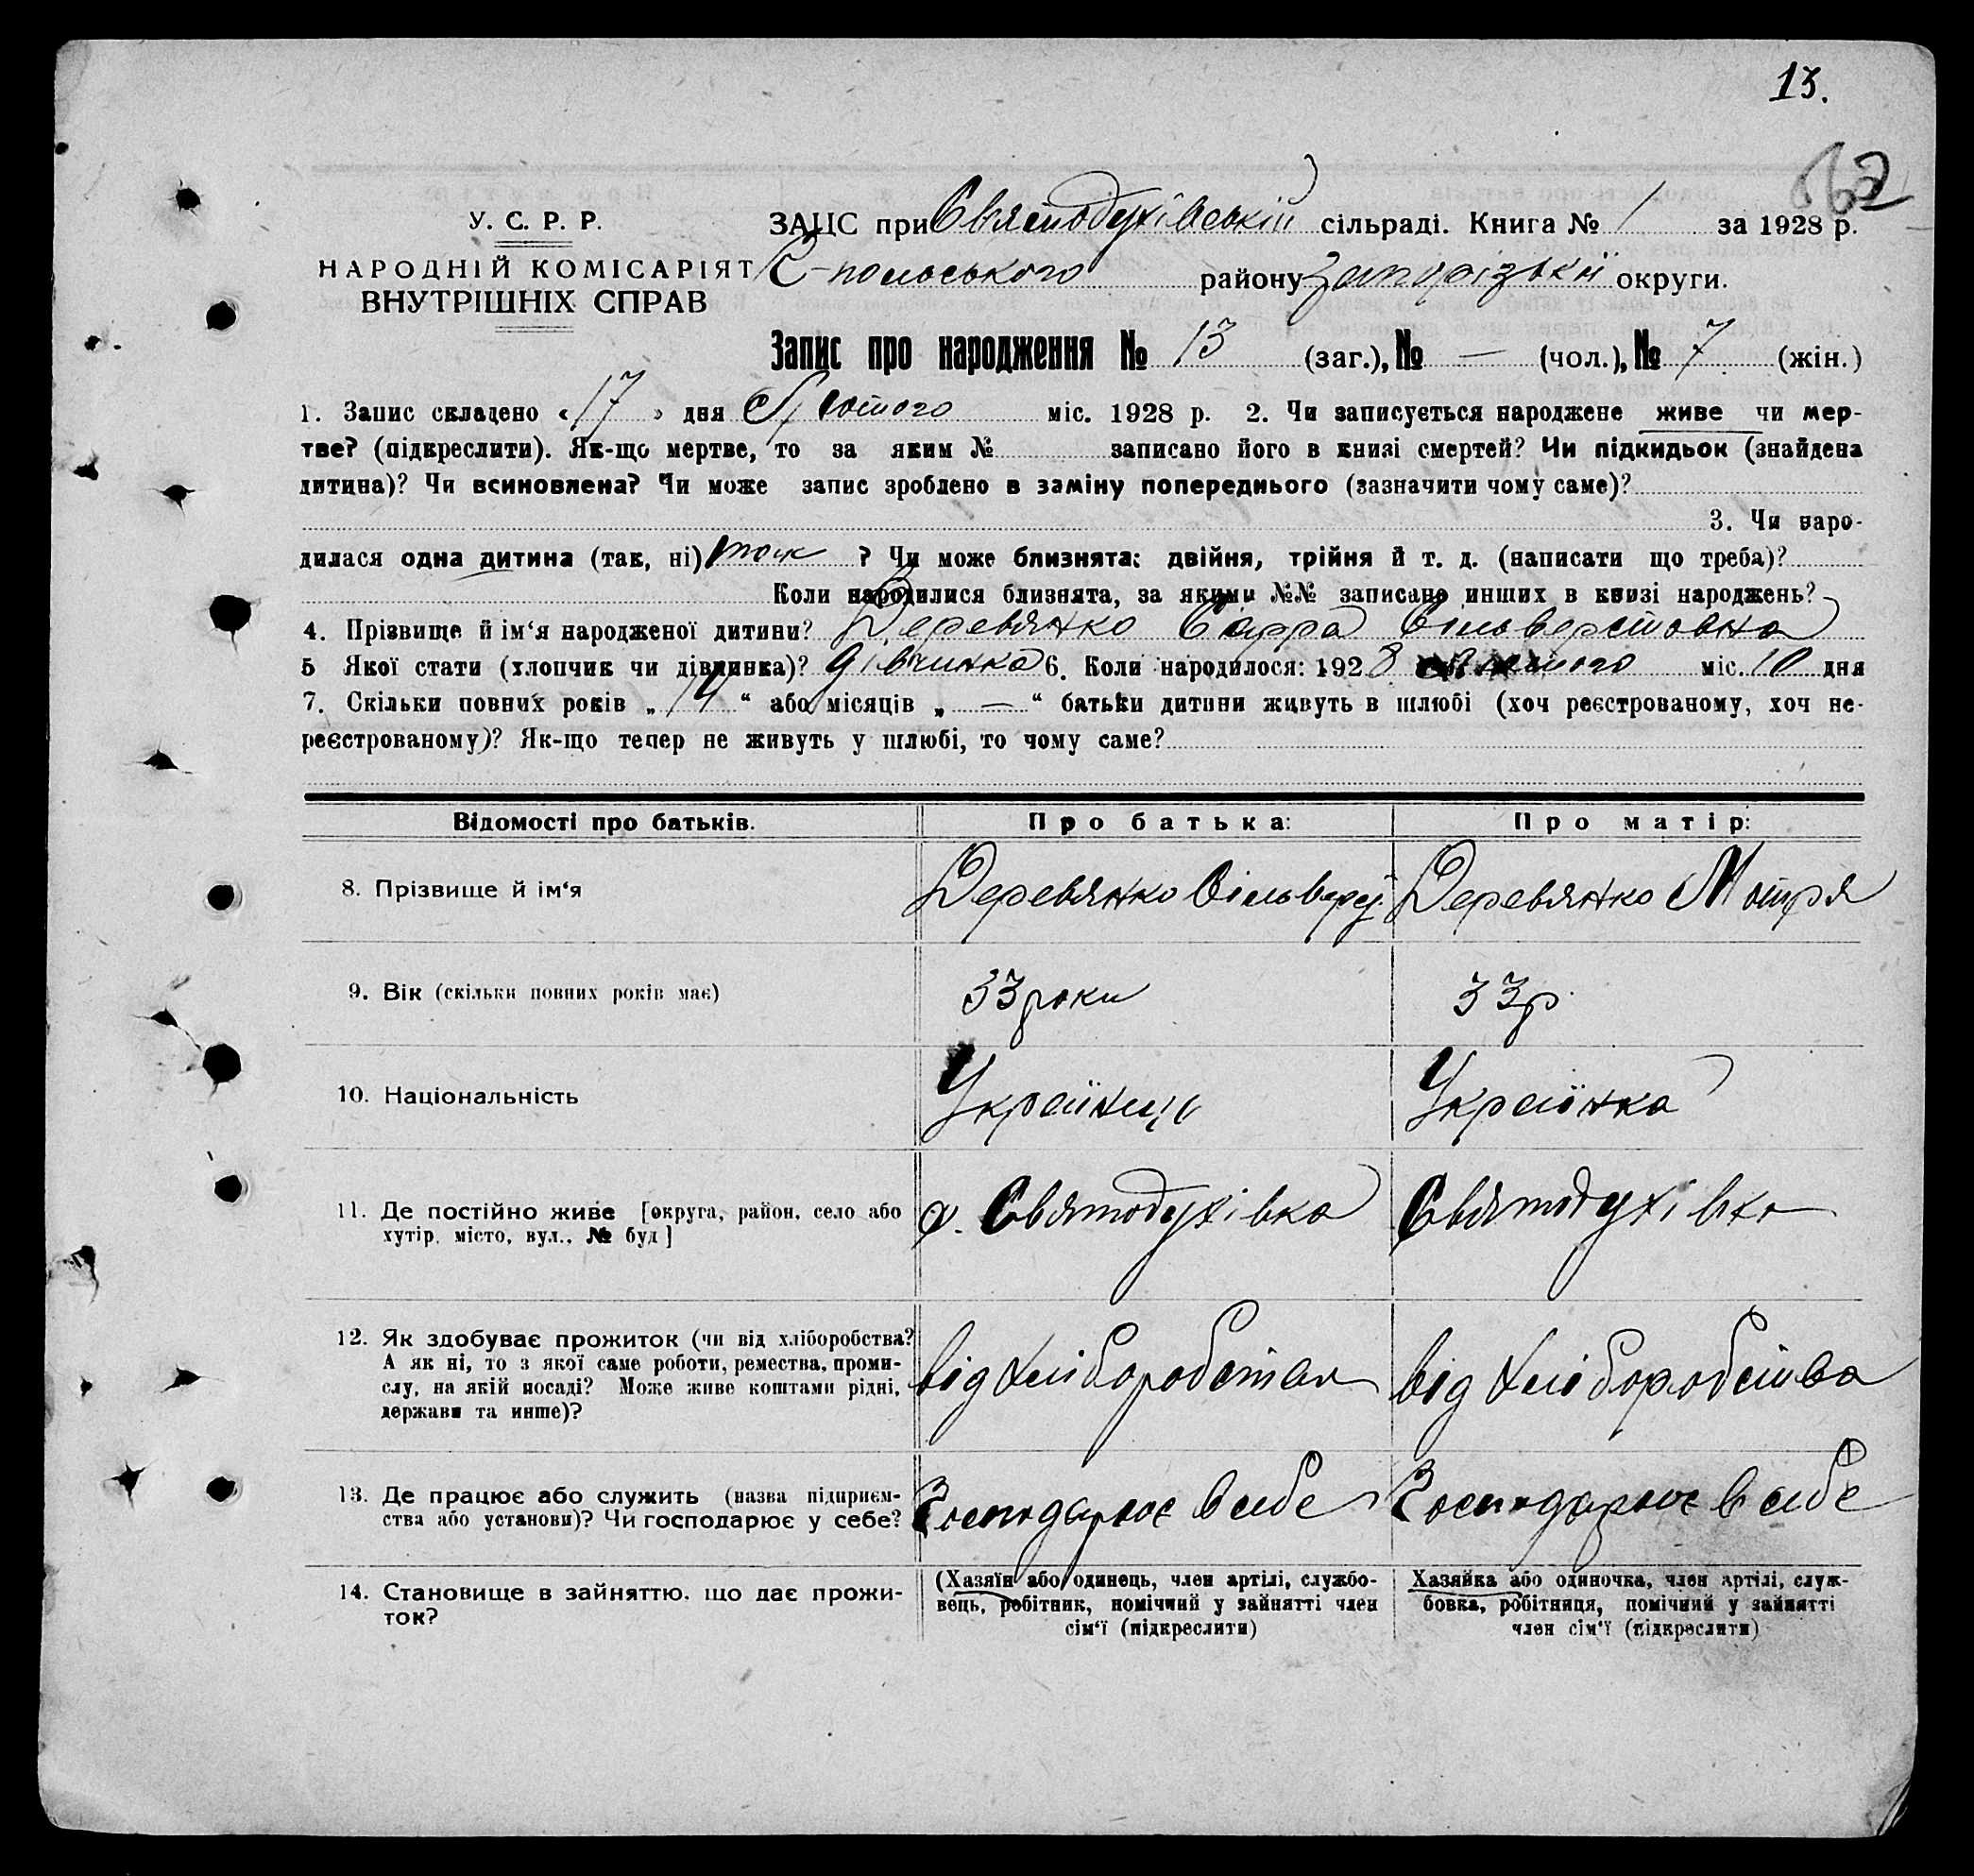 13.
662
У. С. Р. Р.
НАРОДНІЙ КОМІСАРІЯТ
ВНУТРІШНІХ СПРАВ
ЗАЦС при Святодухівській сільраді. Книга № 1 за 1928 р.
С-польського району Запорізької округи.
Запис про народження № 13 (заг.), № — (чол.), № 7 (жін.)
1. Запис складено «17» дня Лютого міс. 1928 р. 2. Чи записується народжене живе чи мер-
тве? (підкреслити). Як-що мертве, то за яким № записано його в книзі смертей? Чи підкидьок (знайдена
дитина)? Чи всиновлена? Чи може запис зроблено в заміну попереднього (зазначити чому саме)?
3. Чи наро-
дилася одна дитина (так, ні) так ? Чи може близнята: двійня, трійня й т. д. (написати що треба)?
Коли народилися близнята, за якими №№ записано инших в книзі народжень?
4. Прізвище й ім‘я народженої дитини? Деревянко Сарра Сільверстовна
5 Якої стати (хлопчик чи дівчинка)? дівчинка 6. Коли народилося: 1928 лютого міс. 10 дня
7. Скільки повних років „ 14 “ або місяців „ — “ батьки дитини живуть в шлюбі (хоч реєстрованому, хоч не-
реєстрованому)? Як-що тепер не живуть у шлюбі, то чому саме?
Відомості про батьків.
Про батька:
Про матір:
8. Прізвище й ім‘я
Деревянко Сільверс.
Деревянко Мотря
9. Вік (скільки повних років має)
33 роки
33 р
10. Національність
Українець
Українка
11. Де постійно живе [округа, район, село або
хутір, місто, вул., № буд]
с. Святодухівка
Святодухівка
12. Як здобуває прожиток (чи від хліборобства?
А як ні, то з якої саме роботи, ремества, проми-
слу, на якій посаді? Може живе коштами рідні,
держави та инше)?
від хліборобства
від хліборобства
13. Де працює або служить (назва підприєм-
ства або установи)? Чи господарює у себе?
Господарює в себе
Господарює в себе
14. Становище в зайняттю, що дає прожи-
ток?
(Хазяїн або одинець, член артілі, службо-
вець, робітник, помічний у зайнятті член
сім‘ї (підкреслити)
Хазяйка або одиночка, член артілі, служ-
бовка, робітниця, помічний у зайнятті
член сім‘ї (підкреслити)